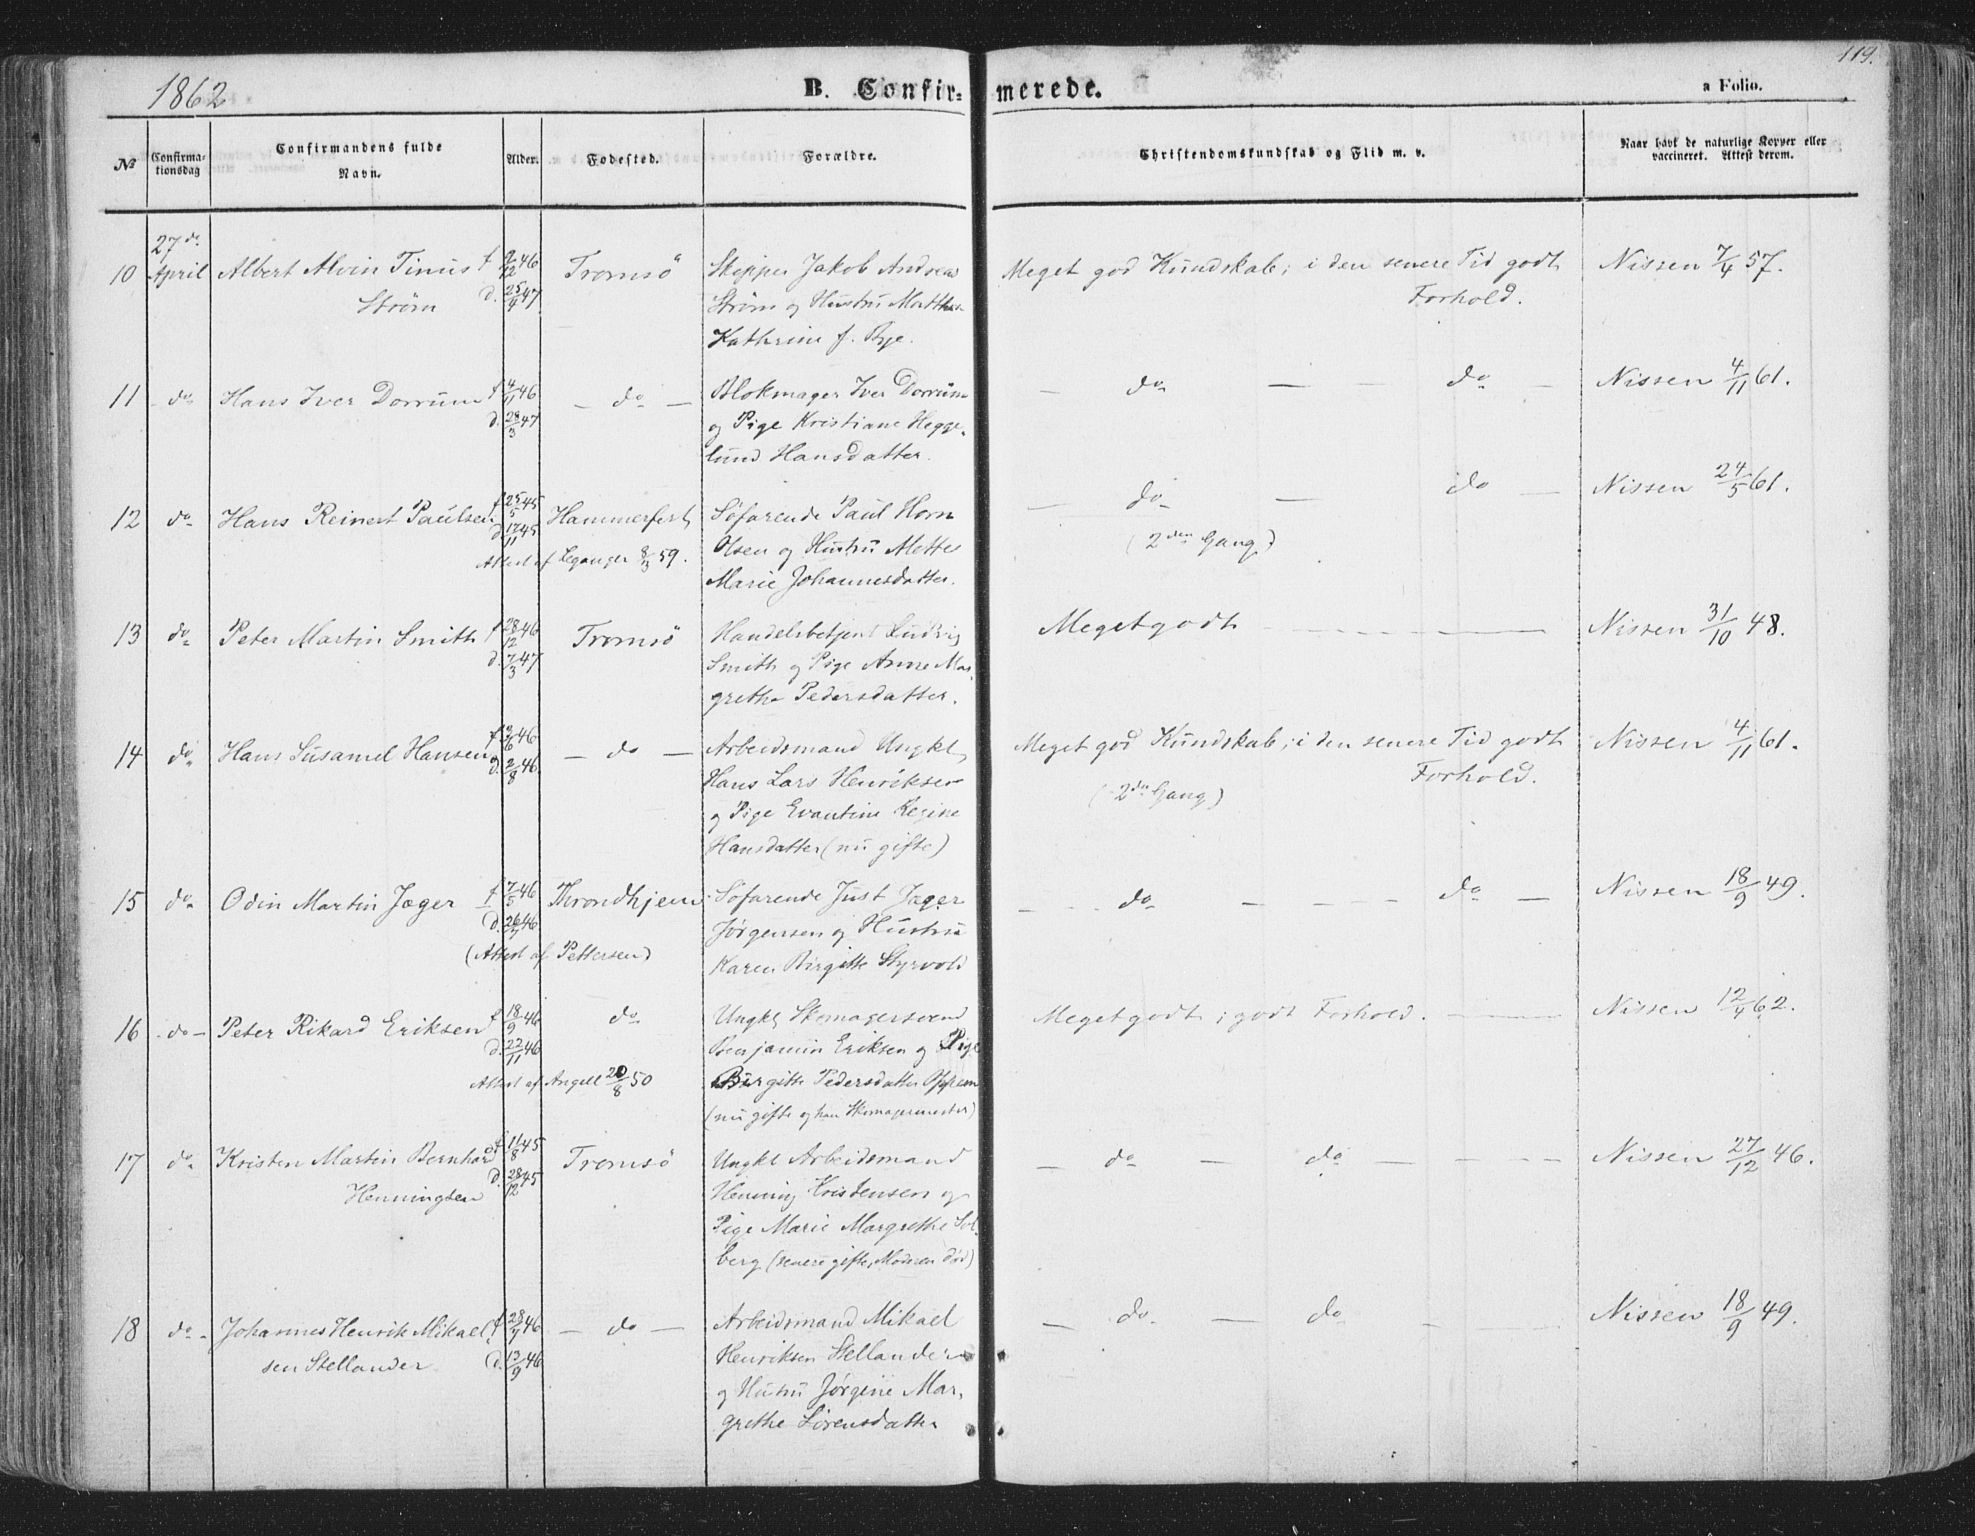 1862
B. Confir- merede.
119.
a Folio.
No
Confirma-
tionsdag
Confirmandens fulde
Navn.
Alder.
Fodested.
Forældre.
Christendomskundskab og Flid m. v.
Naar havt de naturlige Kopper eller
vaccineret. Attest derom.
27de
10 April Albert Alvin Tinus f 9/12 46 Tromsö Skipper Jakob Andreas Meget god Kundskab; i den senere Tid godt Nissen 7/4 57.
Strøm d. 25/4 47 Strøm og Hustru Matthea Forhold.
Kathrine f. Bye.
11 do Hans Iver Dorrum f 4/11 46 — do — Blokmager Iver Dorrum — do — — do — Nissen 4/11 61.
d. 28/3 47 og Pige Kristiane Hegge-
lund Hansdatter.
12 do Hans Reinert Paulsen f 25/5 45 Hammerfest Søfarende Paul Horn — do — do — Nissen 24/5 61.
d. 17/11 45 Olsen og Hustru Mette (2den Gang)
Attest af Leganger 8/3 59. Marie Johannesdatter.
13 do Peter Martin Smith f 28/12 46 Tromsö Handelsbetjent Ludvig Meget godt — Nissen 31/10 48.
d. 7/3 47 Smith og Pige Anne Mar-
grethe Pedersdatter.
14 do Hans Susamel Hansen f 3/6 46 — do — Arbeidsmand Ungkl. Meget god Kundskab; i den senere Tid godt Nissen 4/11 61.
d. 2/8 46 Hans Lars Henriksen (2den Gang) Forhold.
og Pige Evantine Regine
Hansdatter (nu gifte)
15 do Odin Martin Jæger f 7/5 46 Throndhjem Søfarende Just Jæger — do — do — Nissen 18/9 49.
d. 26/7 46 Jørgensen og Hustru
(Attest af Pettersen) Karen Birgitte Styrvold
16 do — Peter Rikard Eriksen f 18/9 46 do Ungkl. Skomagersvend Meget godt; godt Forhold. — Nissen 12/4 62.
d. 22/11 46 Benjamin Eriksen og Pige
Attest af Angell 20/8 50 Birgitte Pedersdatter Oppem
(nu gifte og han Skomagermester)
17 do Kristen Martin Bernhard f 11/8 45 Tromsö Ungkl Arbeidsmand — do — do — Nissen 27/12 46.
Henningsen d. 28/12 45 Henning Kristensen og
Pige Marie Margrethe Sol-
berg (senere gifte, Moderen død)
18 do Johannes Henrik Mikael- f 28/7 46 — do — Arbeidsmand Mikael — do — do — Nissen 18/9 49.
sen Stellander d. 13/9 46 Henriksen Stellander
og Hustru Jørgine Mar-
grethe Sørensdatter